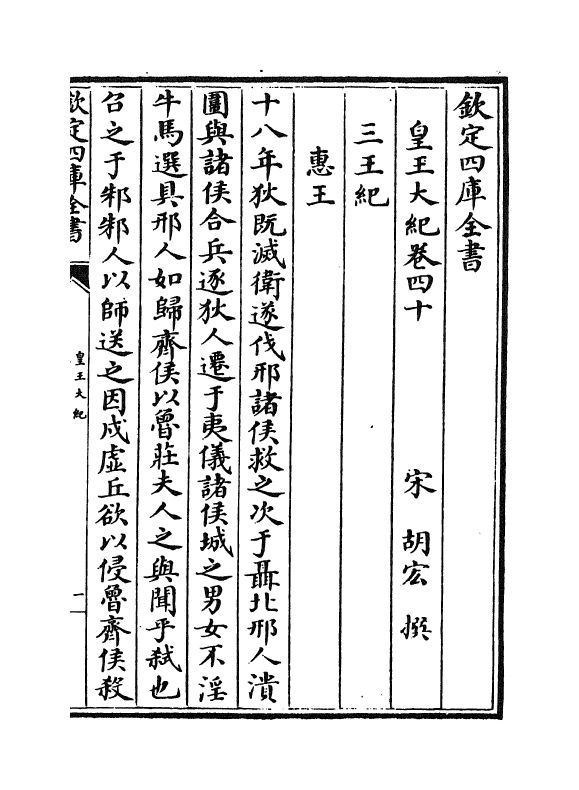 欽定四庫全書
皇王大紀卷四十
宋　胡宏　撰
三王紀
惠王
十八年狄既滅衛遂伐邢諸侯救之次于聶北邢人潰
圍與諸侯合兵逐狄人遷于夷儀諸侯城之男女不淫
牛馬選具邢人如歸齊侯以魯莊夫人之與聞乎弒也
召之于邾邾人以師送之因戍虛丘欲以侵魯齊侯殺
欽定四庫全書
皇王大紀
一